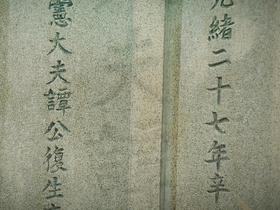 光緒二十七年辛
憲大夫譚公復生